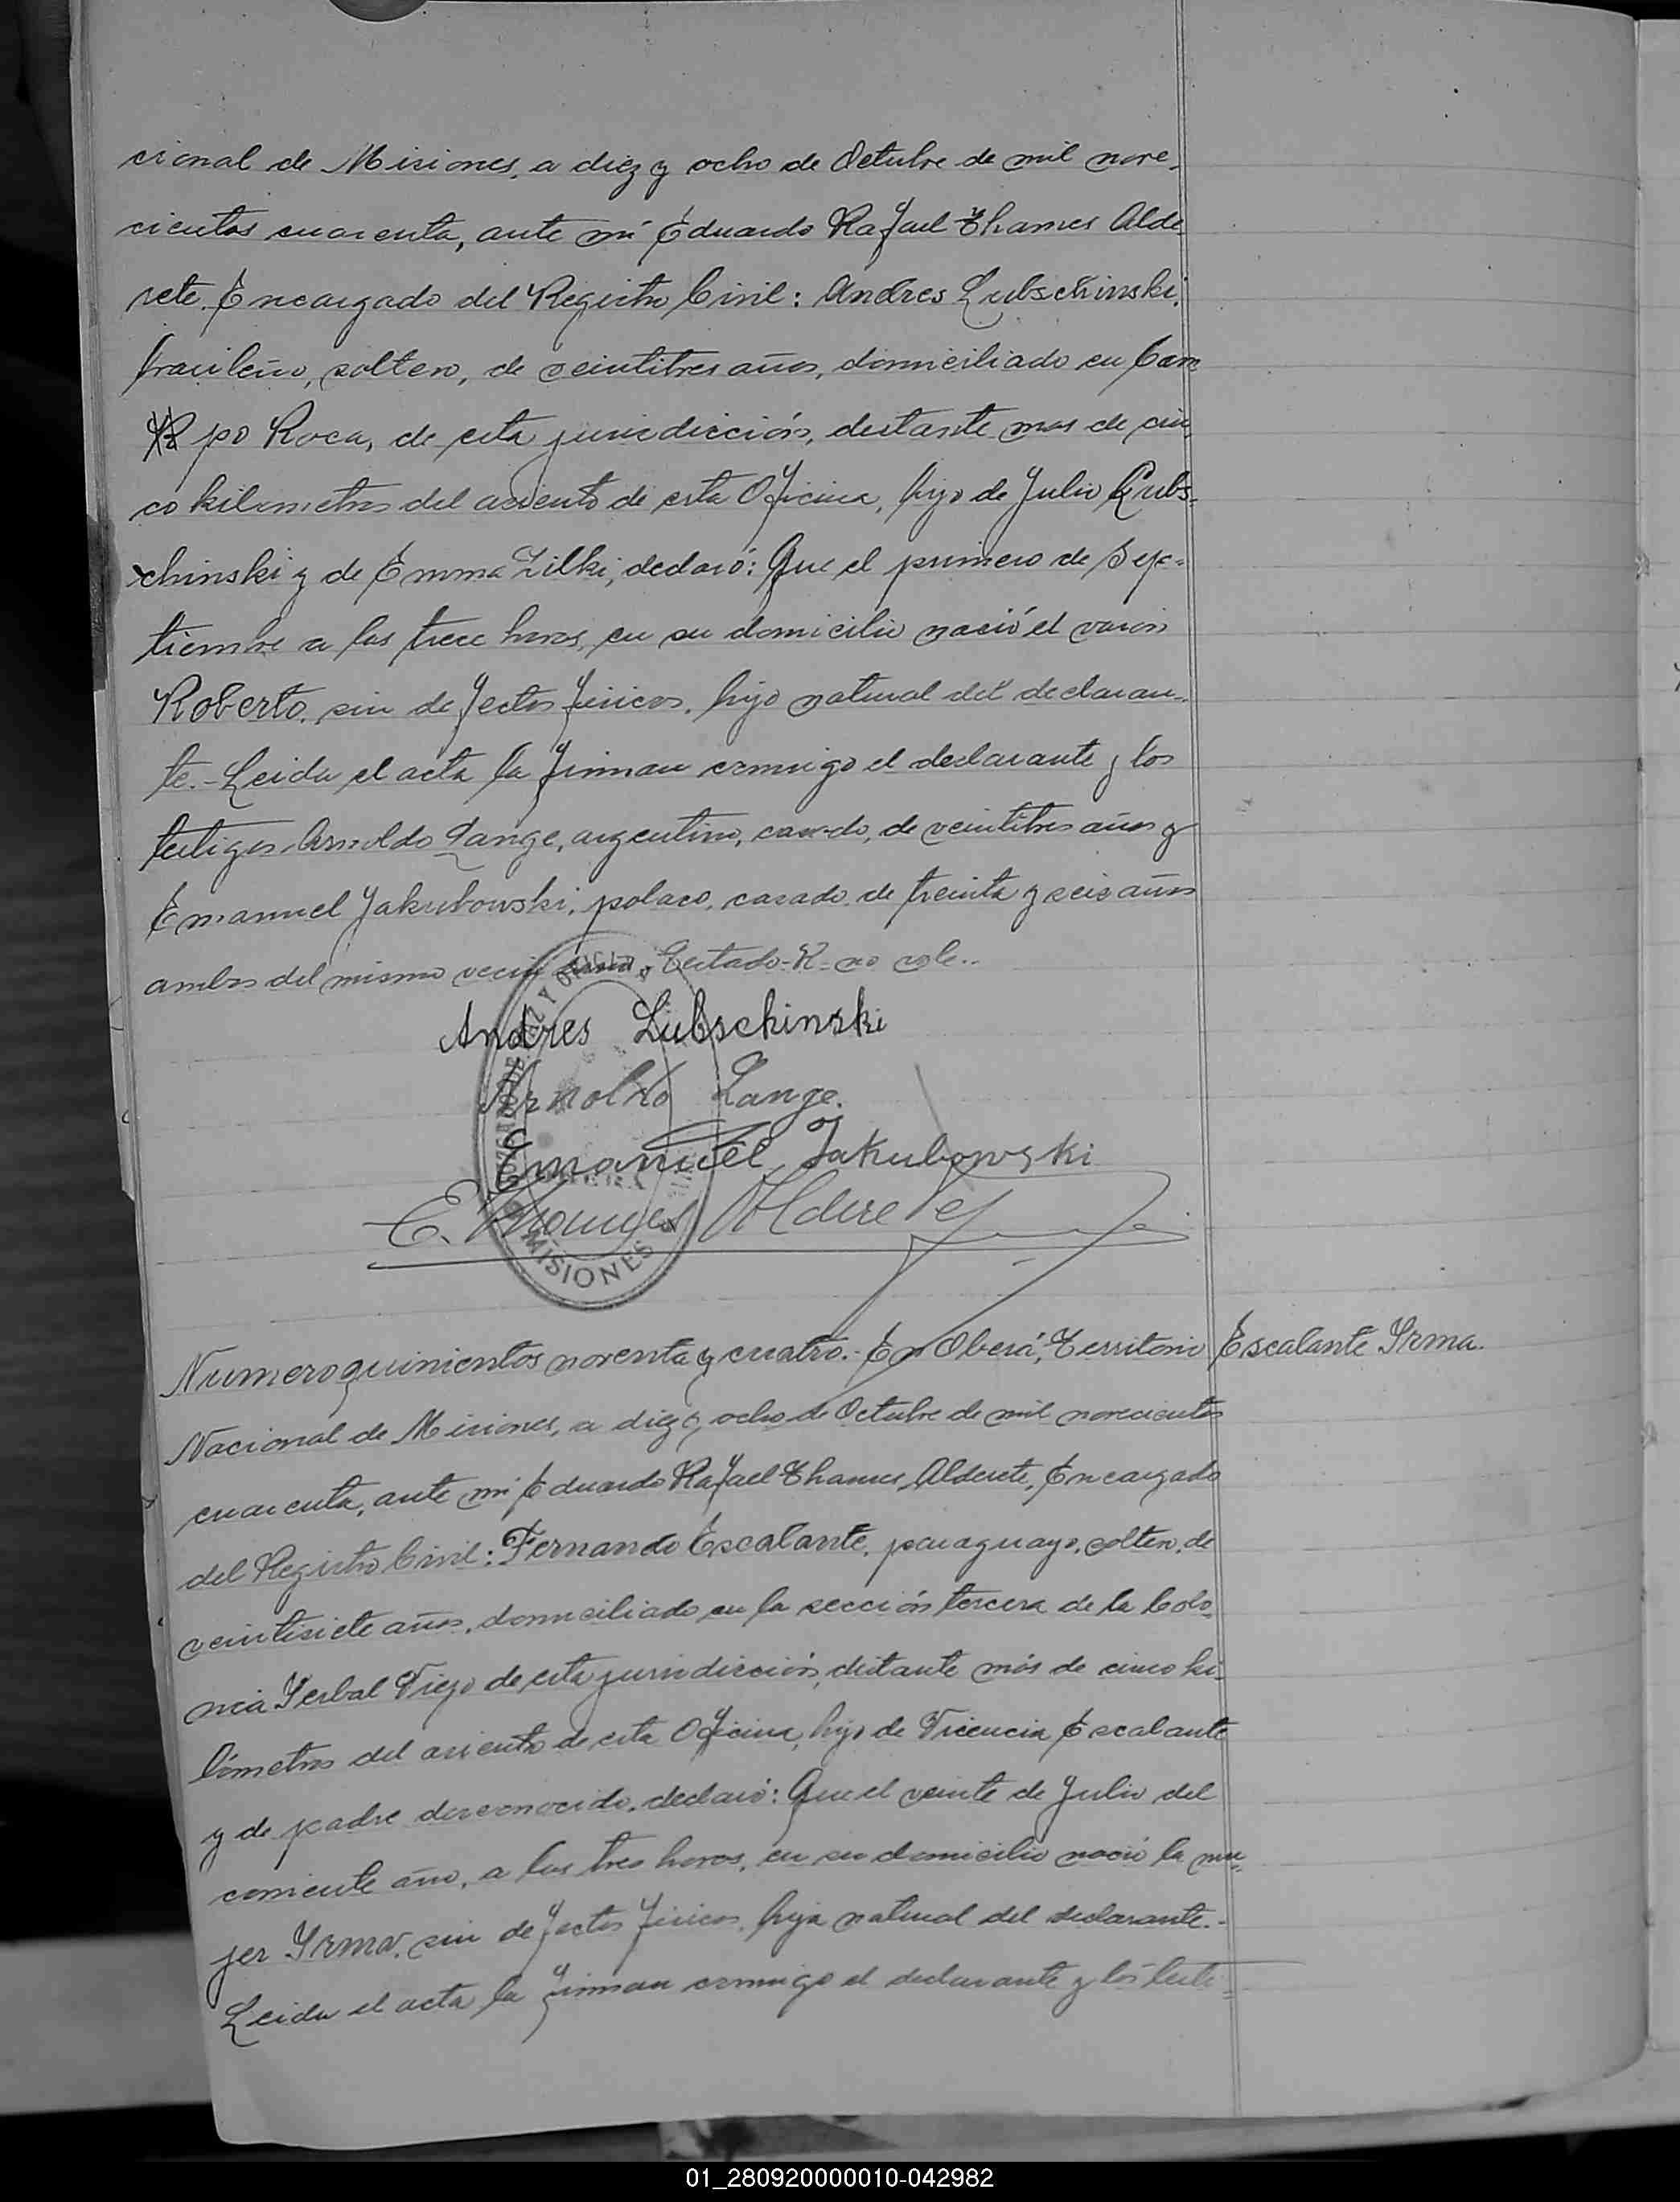 cional de Misiones, a diez y ocho de Octubre de mil nove-
cientos cuarenta, ante mí Eduardo Rafael Thames Alde
rete. Encargado del Registro Civil: Andres Lubschinski,
brasileño, soltero, de veintitres años, domiciliado en Cam
po Roca, de esta jurisdicción, distante mas de cin
co kilometros del asiento de esta Oficina, hijo de Julio Lubs-
chinski y de Emma Zilki, declaró: Que el primero de Sep-
tiembre a las trece horas, en su domicilio nació el varon
Roberto, sin defectos físicos, hijo natural del declaran-
te.- Leida el acta la firman conmigo el declarante y los
testigos Arnoldo Lange, argentino, casado, de veintitres años y
Emanuel Jakubowski, polaco, casado, de treinta y seis años
ambos del mismo vecin Testado-R-no vale..
Andres Lubschinski
Arnoldo Lange.
Emanuel Jakubowski
E. Thames Alderete
MISIONES
Numero quinientos noventa y cuatro.- En Oberá, Territorio
Escalante Irma.
Nacional de Misiones, a diez y ocho de Octubre de mil novecientos
cuarenta, ante mí Eduardo Rafael Thames Alderete, Encargado
del Registro Civil: Fernando Escalante, paraguayo, soltero, de
veintisiete años, domiciliado en la sección tercera de la Colo-
nia Yerbal Viejo de esta jurisdicción, distante más de cinco ki-
lómetros del asiento de esta Oficina, hijo de Vicencia Escalante
y de padre desconocido, declaró: Que el veinte de Julio del
corriente año, a las tres horas, en su domicilio nació la mu-
jer Irma, sin defectos físicos, hija natural del declarante.-
Leida el acta la firman conmigo el declarante y los testi-
01_280920000010-042982